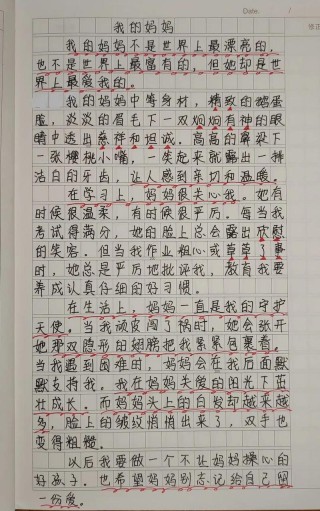 Date.
我的妈妈
我的妈妈不是世界上最漂亮的,
也不是世界上最富有的,但她却是世
界上最爱我的。
我的妈妈中等身材,精致的鹅蛋
脸,炎炎的眉毛下一双炯炯有神的眼
睛中透出慈祥和坦诚。高高的鼻梁下
一张樱桃小嘴,一笑起来就露出一排
洁白的牙齿,让人感到亲切和温暖。
在学习上,妈妈很关心我。她有
时候很温柔,有的时候很严厉。每当我
考试得满分,她的脸上总会露出欣慰
的笑容。但当我作业粗心或草草了事
时,她总是严厉地批评我,教育我要
养成认真仔细的好习惯。
在生活上,妈妈一直是我的守护
天使。当我顽皮闯了祸时,她会张开
她那双隐形的翅膀把我紧紧包裹着。
当我遇到困难时,妈妈会在我后面默
默支持我。我在妈妈关爱的目光下茁
壮成长。而妈妈头上的白发却越来越
多,脸上的皱纹悄悄出来了,双手也
变得粗糙。
以后我要做一个不让妈妈操心的
好孩子。也希望妈妈别忘记给自己留
一份爱。